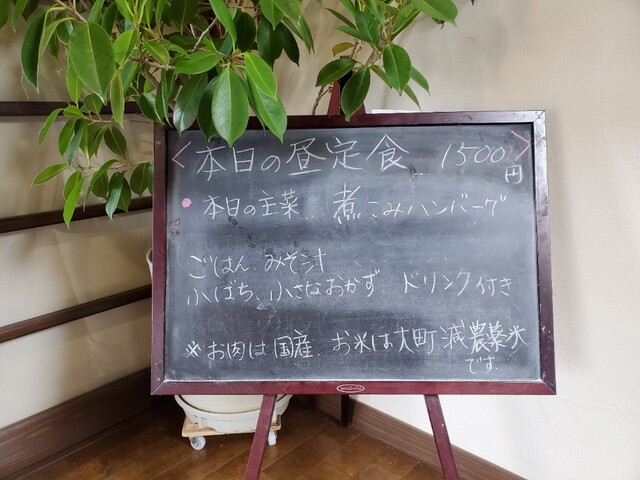 <本日の昼定食 1500円>
・本日の主菜… 煮こみハンバーグ
ごはん、みそ汁
小ばち、小さなおかず、ドリンク付き
※お肉は国産、お米は大町減農薬米
です